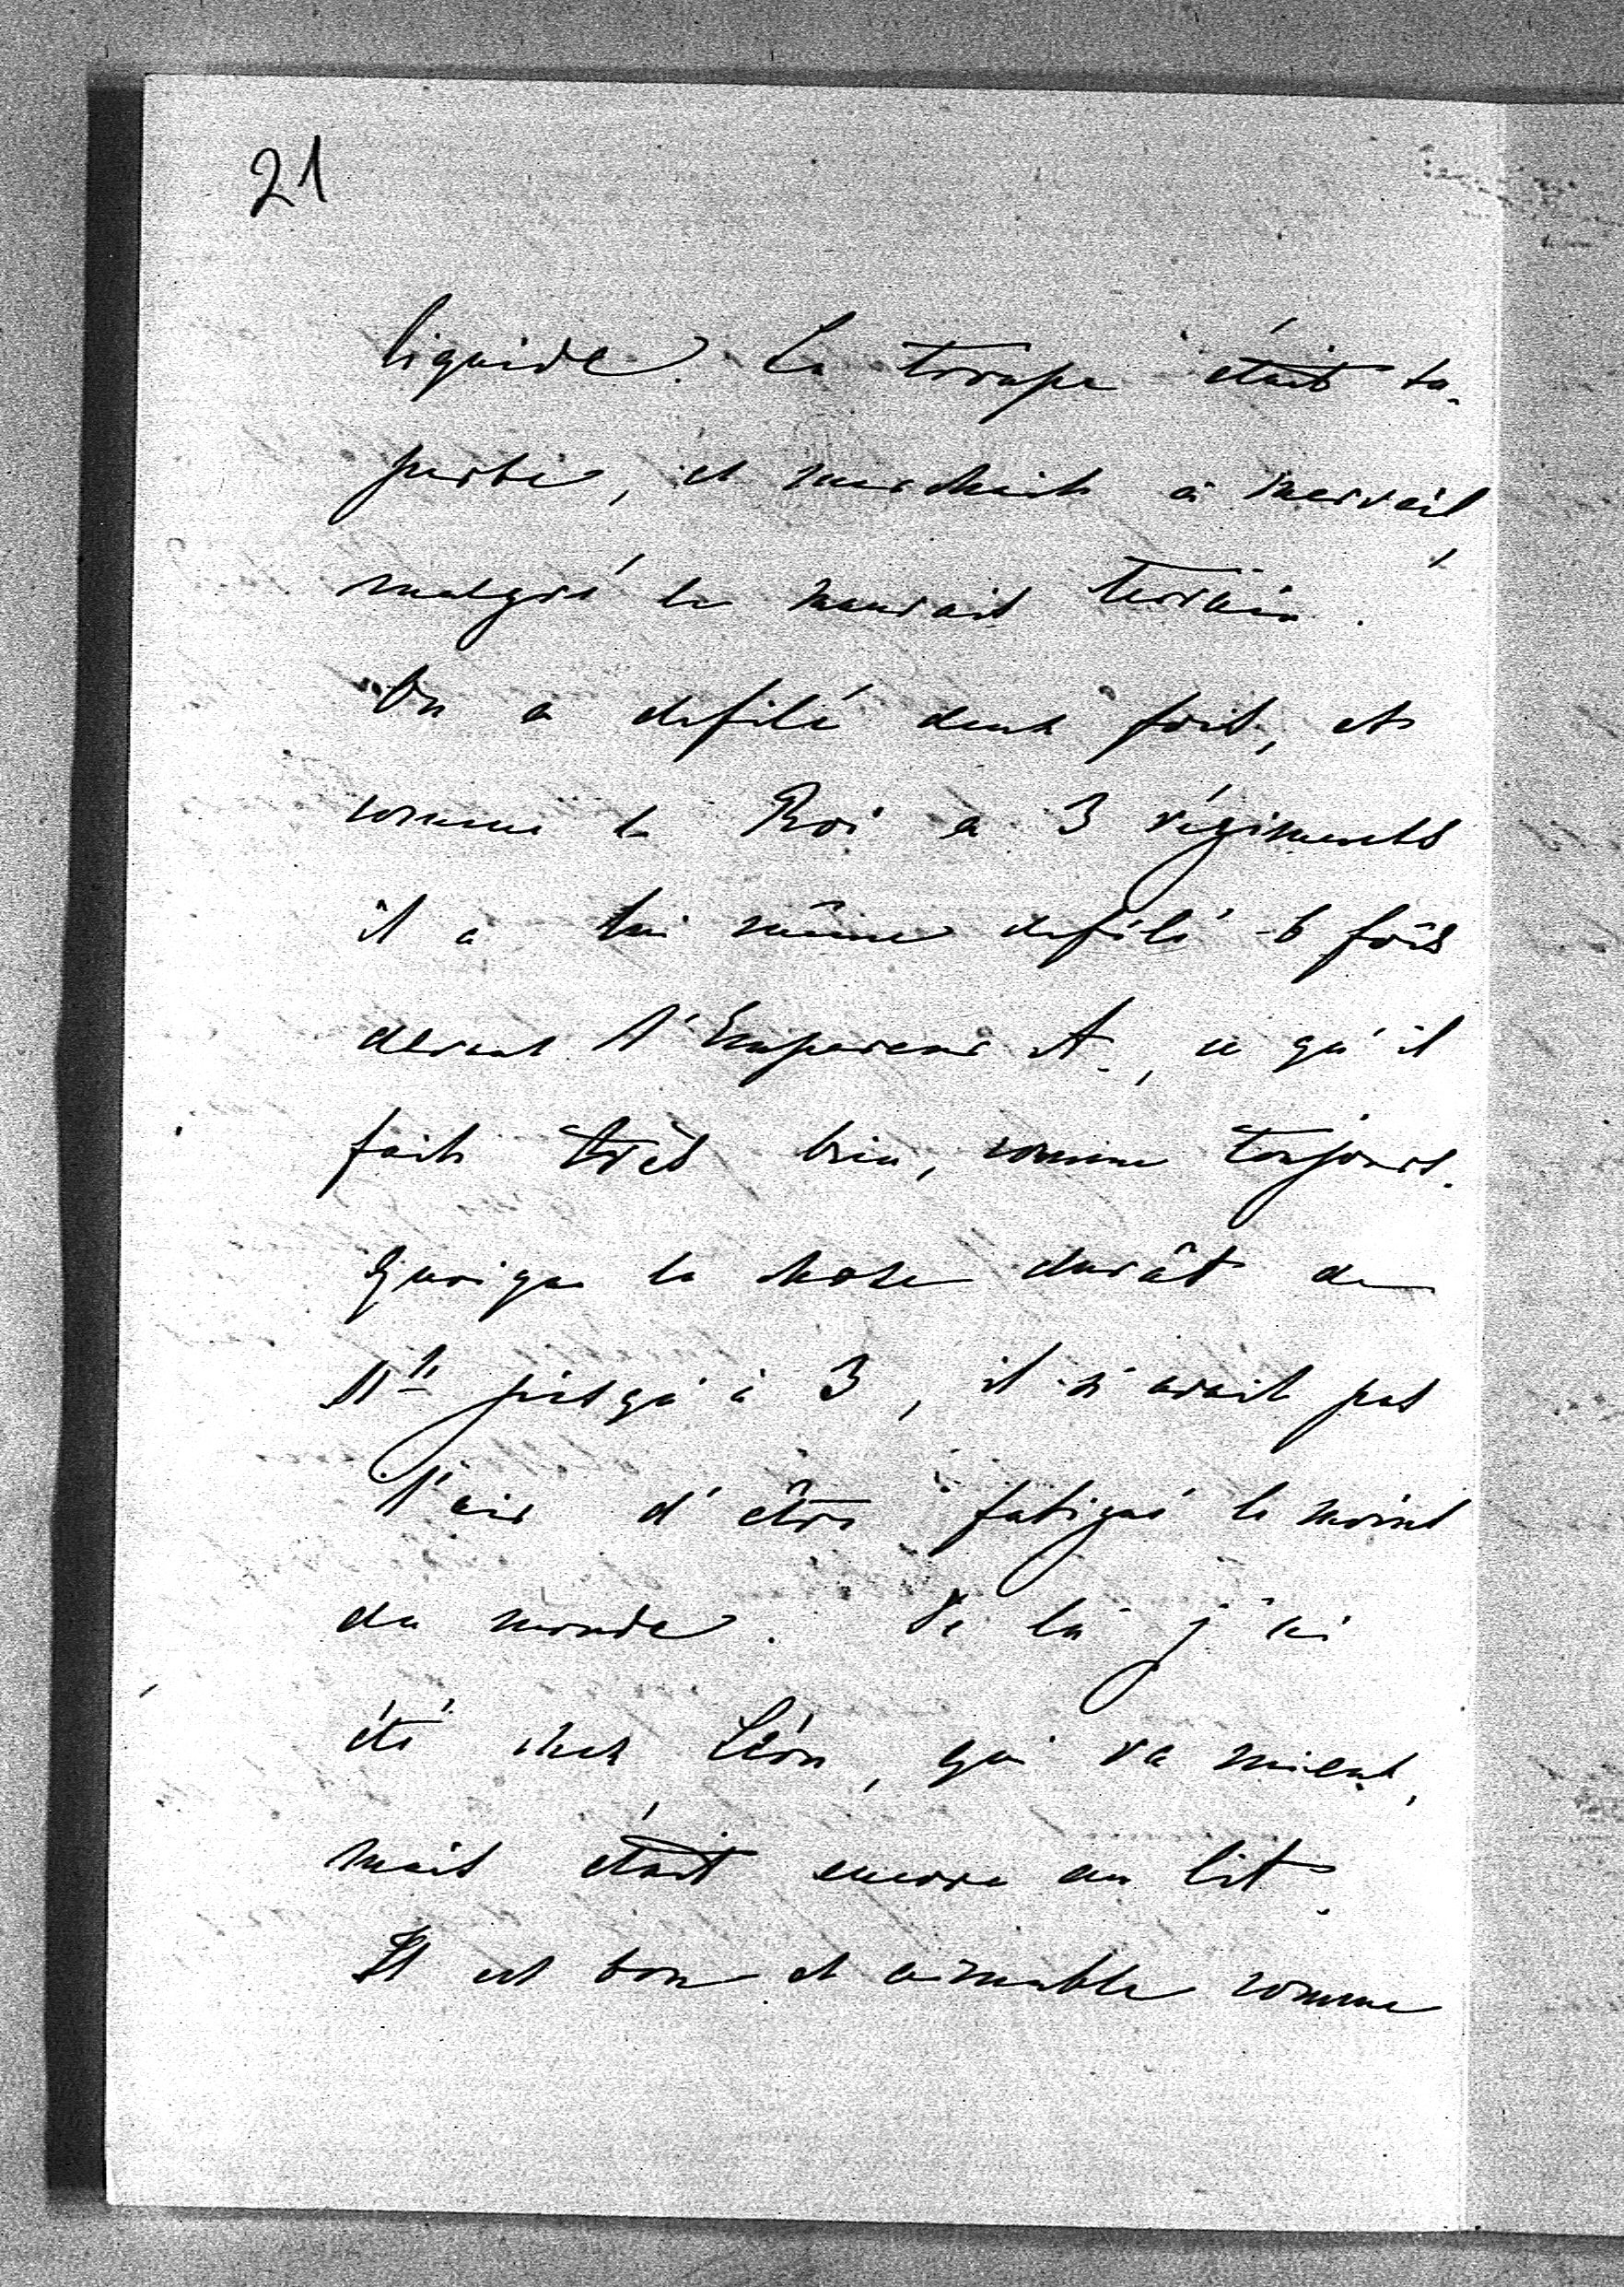 21
liquide. La troupe était su-
perbe, et marchait à merveil
malgré le mauvais terrain.
On a defilé deux fois, et
comme le Roi a 3 régiments
il a lui même defilé 6 fois
devant l'Empereur A., ce qu'il
fait très bien, comme toujours.
Quoique la chose durât de
11h jusqu'à 3, il n'avait pas
l'air d'être fatigué le moins
du monde. De là j'ai
été chez Léon, qui va mieux,
mais était encore au lit.
Il est bon et aimable comme